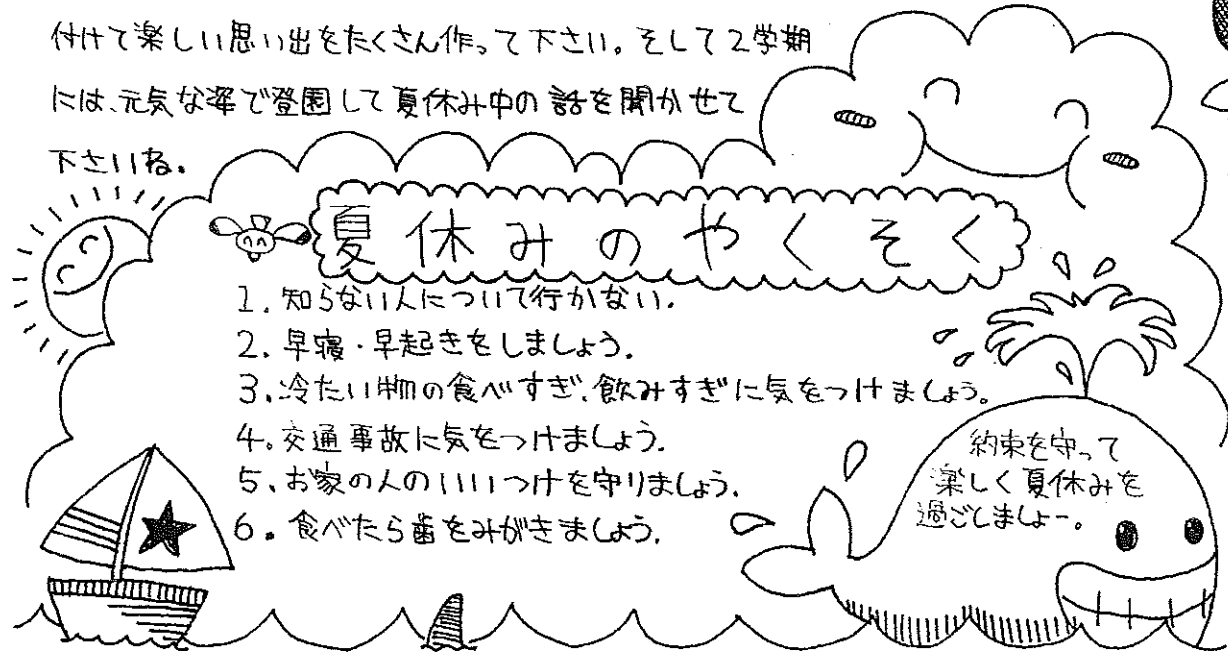 付けて楽しい思い出をたくさん作って下さい。そして2学期
には、元気な姿で登園して夏休み中の話を聞かせて
下さいね。
夏休みのやくそく
1. 知らない人について行かない.
2. 早寝・早起きをしましょう.
3. 冷たい物の食べすぎ、飲みすぎに気をつけましょう。
4。交通事故に気をつけましょう.
5、お家の人のいいつけを守りましょう.
6。食べたら歯をみがきましょう.
約束を守って
楽しく夏休みを
過ごしましょー。